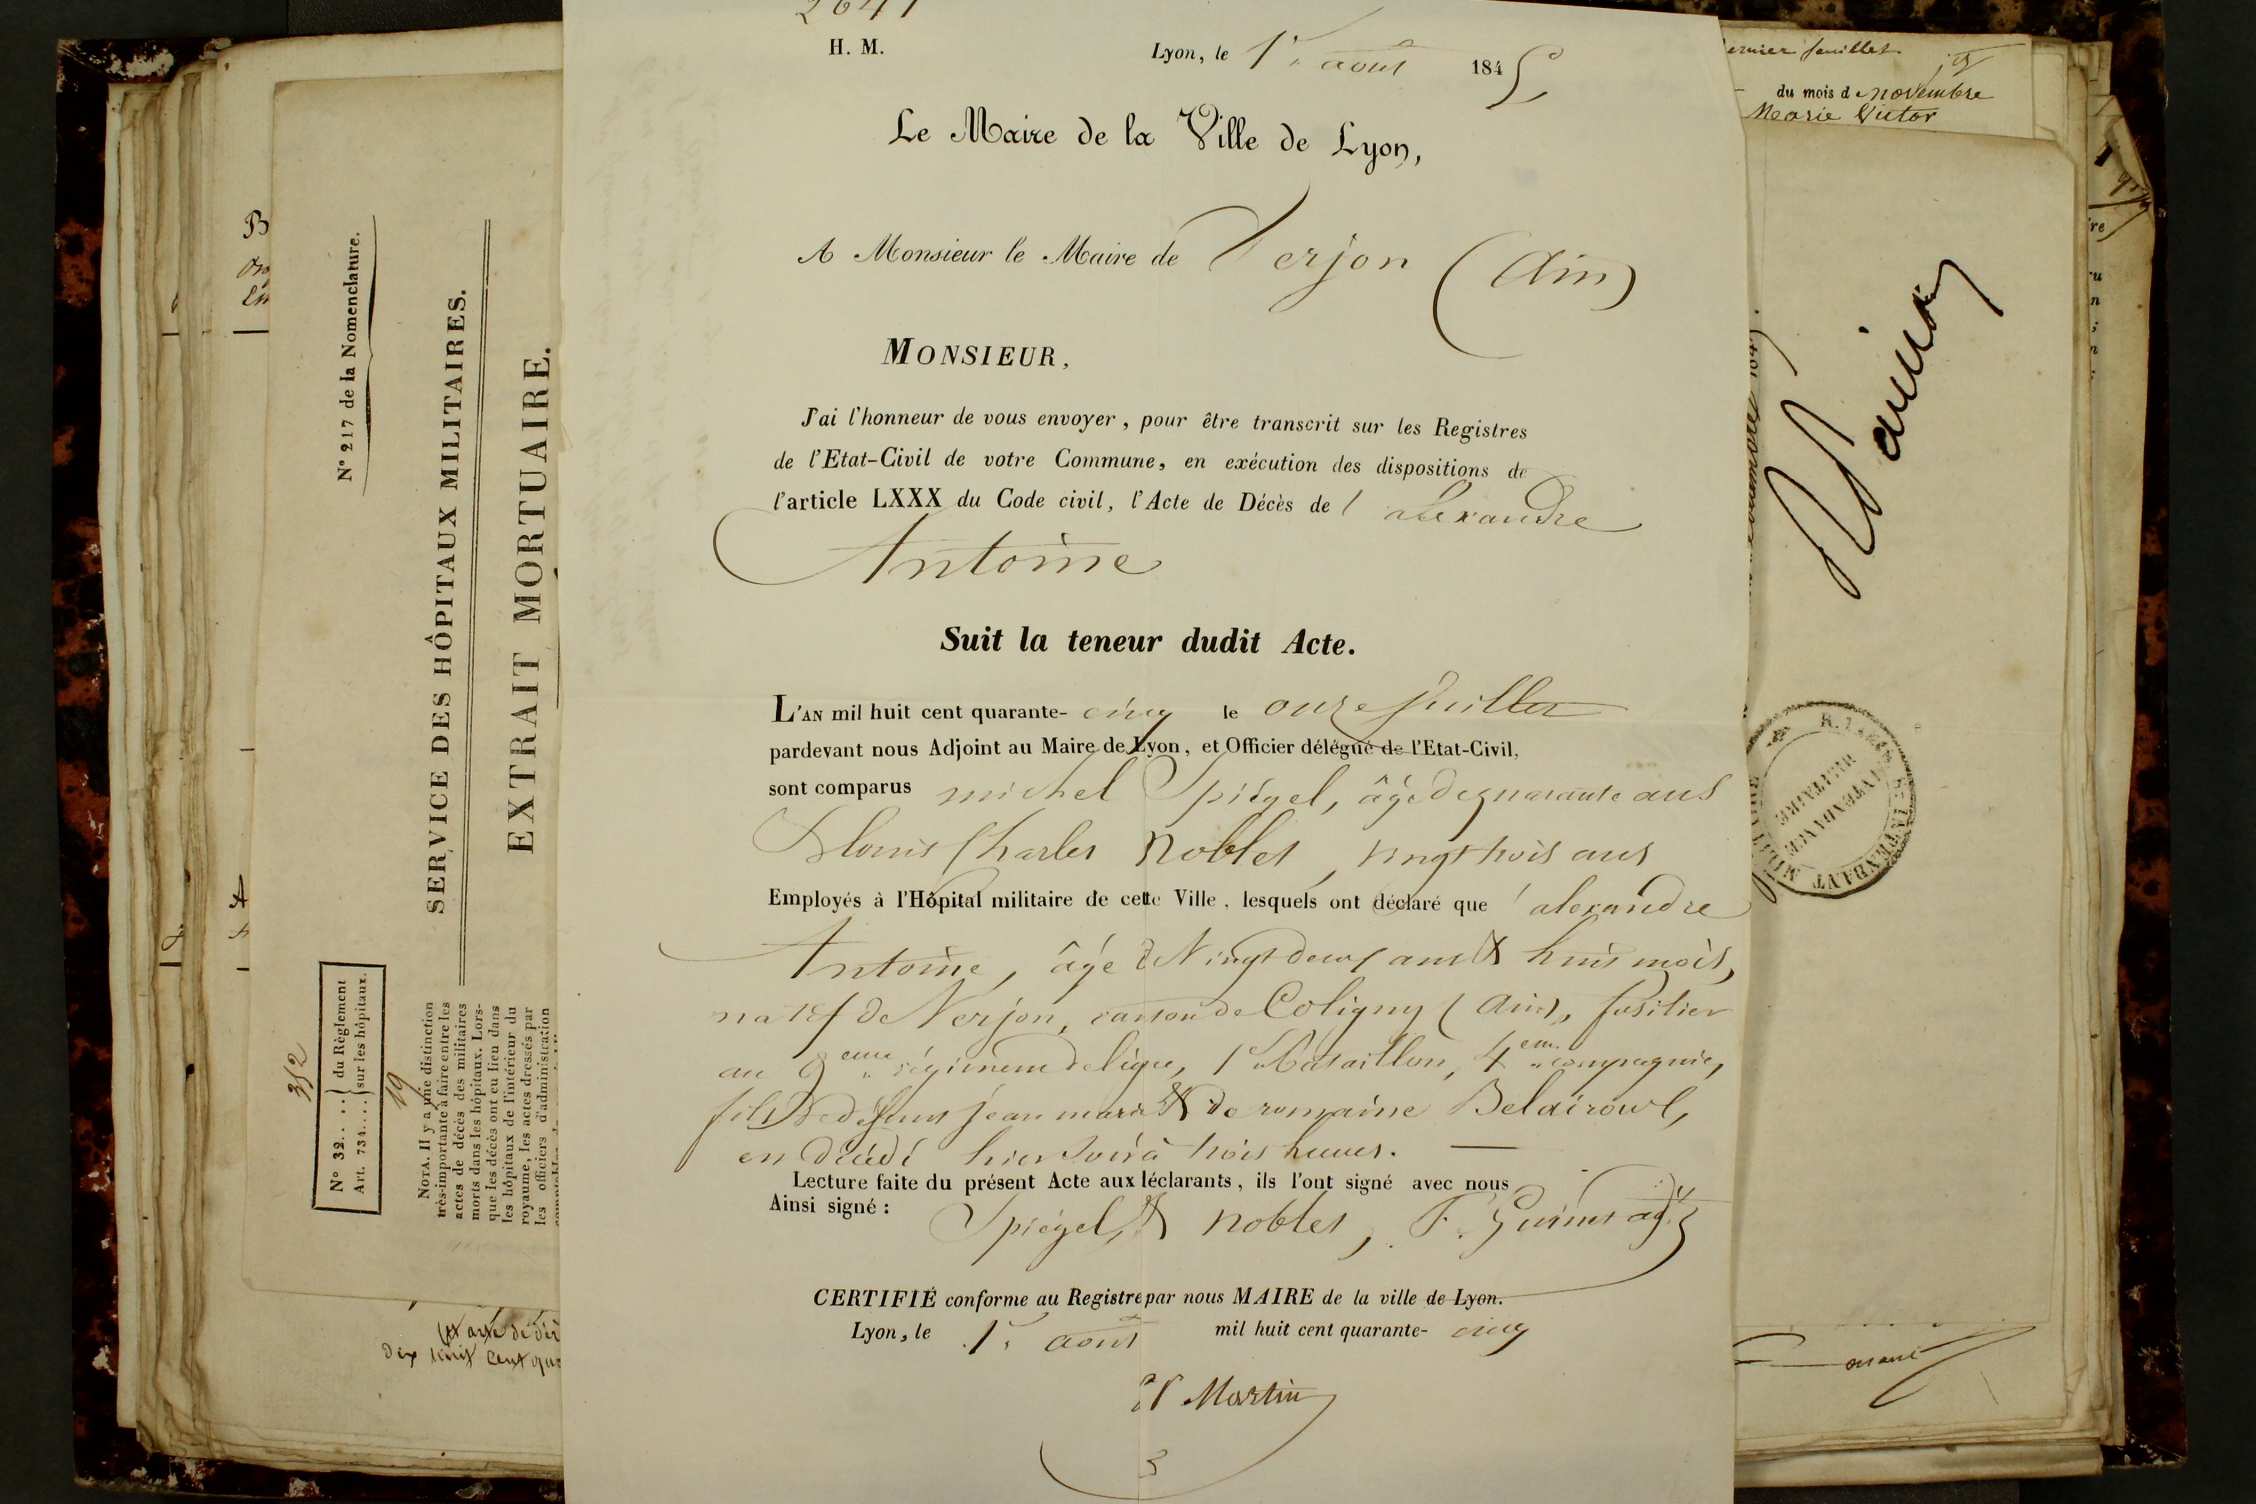 2641
H. M.
Lyon, le 1er août 1845
Le Maire de la Ville de Lyon,
A Monsieur le Maire de Verjon (Ain)
MONSIEUR,
J'ai l'honneur de vous envoyer, pour être transcrit sur les Registres
de l'Etat-Civil de votre Commune, en exécution des dispositions de
l'article LXXX du Code civil, l'Acte de Décès de alexandre
Antoine
Suit la teneur dudit Acte.
L'AN mil huit cent quarante- cinq le onze Juillet
pardevant nous Adjoint au Maire de Lyon, et Officier délégué de l'Etat-Civil,
sont comparus michel Spiégel, âgé de quarante ans
& louis Charles Noblet, vingt trois ans
Employés à l'Hôpital militaire de cette Ville, lesquels ont déclaré que alexandre
Antoine, âgé de Vingt deux ans & huit mois,
natif de Verjon, canton de Coligny (Ain), fusilier
au régiment de ligne, 1er Bataillon, 4eme compagnie,
fils de défunt jean marie & de romaine
en décédé hier soir à trois heures.
Lecture faite du présent Acte aux déclarants, ils l'ont signé avec nous
Ainsi signé : Spiégel, & Noblet, F. adj.
CERTIFIÉ conforme au Registre par nous MAIRE de la ville de Lyon.
Lyon, le 1er août mil huit cent quarante- cinq
Martin
N° 217 de la Nomenclature.
SERVICE DES HÔPITAUX MILITAIRES.
EXTRAIT MORTUAIRE.
352
N° 32.... du Règlement
Art. 734.... sur les hôpitaux.
19
NOTA. Il y a une distinction
très-importante à faire entre les
actes de décès des militaires
morts dans les hôpitaux. Lors-
que les décès ont eu lieu dans
les hôpitaux de l'intérieur du
royaume, les actes dressés par
les officiers d'administration
dix huit cent
feuillet
du mois de novembre
Marie Victor
INTENDANCE
MILITAIRE